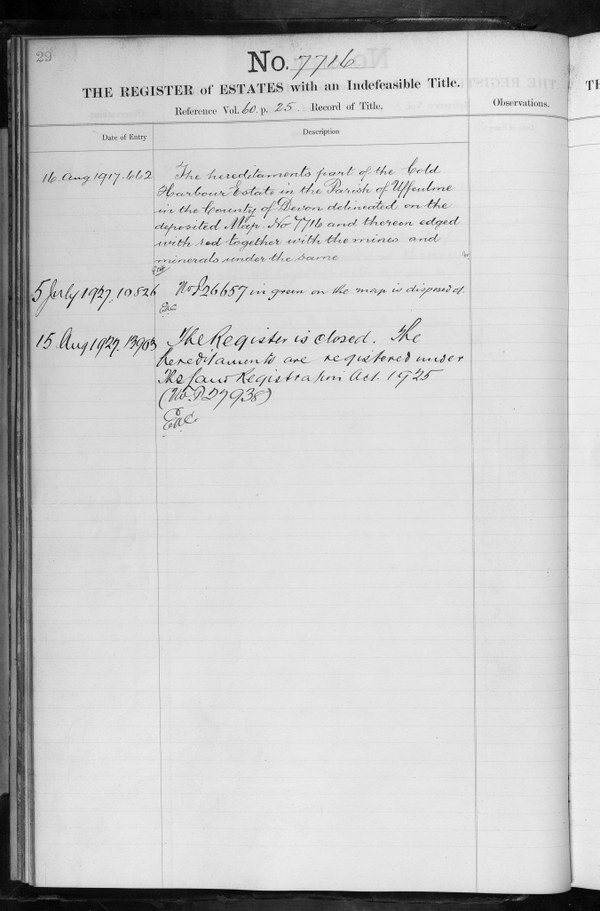 29
No. 7716
THE REGISTER of ESTATES with an Indefeasible Title.
Reference Vol. 60. p. 25. Record of Title.
Observations.
Date of Entry
Description
16. Aug. 1917. 662
The hereditaments part of the Cold
Harbour Estate in the Parish of Uffculme
in the County of Devon delineated on the
deposited Map No 7716 and thereon edged
with red together with the mines and
minerals under the same
5 July 1927. 10826
No P26657 in green on the map is disposed of.
15 Aug 1927. 13903
The Register is closed. The
hereditaments are registered under
the Land Registration Act. 1925
(No. P27938)